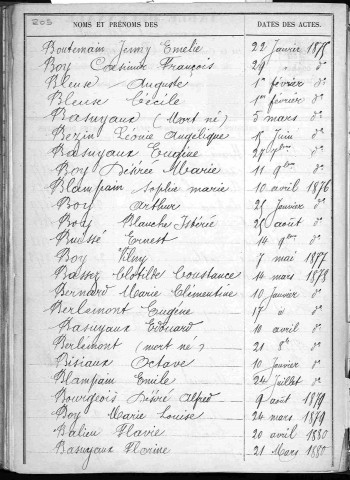 203
NOMS ET PRÉNOMS DES DATES DES ACTES.
Boutemain Jenny Emelie 22 Janvier 1875
Boy Casimir François 29 " d°
Bleuse Auguste 1er février d°
Bleuse Cécile 1er février d°
Basuyaux (Mort né) 5 mars d°
Bezin Léonie Angélique 15 Juin d°
Basuyaux Eugène 27 d°
Boy Désirée Marie 11 9bre d°
Blampain Sophie marie 10 avril 1876
Boy Arthur 25 Janvier d°
Boy Blanche 25 août d°
Buessé Ernest 14 9bre d°
Boy 7 mai 1877
Bassez Clotilde Constance 14 mars 1878
Bernard Marie Clémentine 10 Janvier d°
Berlemont Eugène 17 d° d°
Basuyaux Edouard 10 avril d°
Berlemont (mort né) 21 8bre d°
Bisiaux Octave 10 Janvier d°
Blampain Emile 24 Juillet d°
Bourgeois Désiré Alfred 9 août 1879
Boy Marie Louise 24 mars 1879
Balieu Flavie 20 avril 1880
Basuyaux Florine 21 Mars 1880